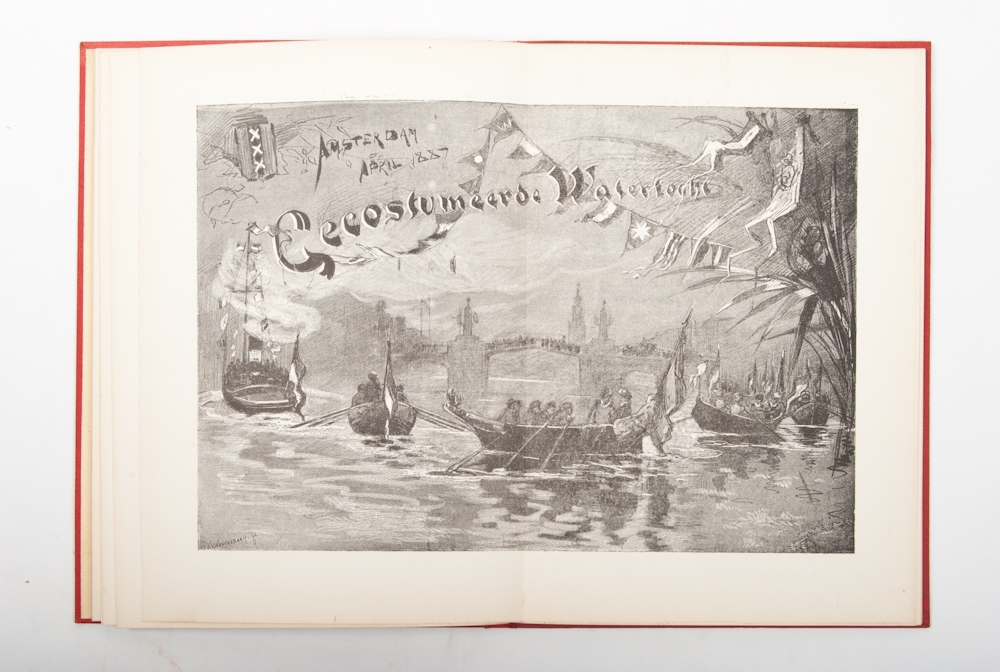 XXX
AMSTERDAM
APRIL 1887
Gecostumeerde Watertocht
W